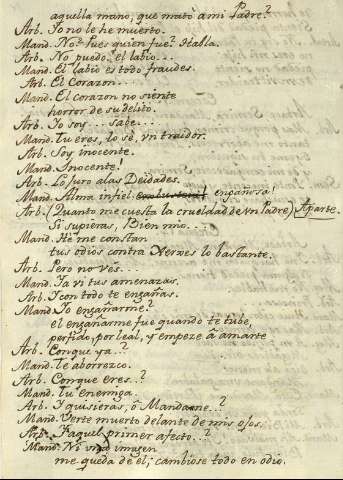 aquella mano, que mató a mi Padre?
Arb. Io no le he muerto.
Mand. No? Pues quien fue? Habla.
Arb. No puedo: el labio...
Mand. El labio es todo fraudes.
Arb. El Corazon....
Mand. El corazon no siente
horror de su delito.
Arb. Io soy.... sabe....
Mand. Tu eres, lo sé, vn traidor.
Arb. Soy inocente.
Mand. Inocente!
Arb. Lo Juro a las Deidades.
Mand. Alma infiel engañosa!
Arb. (Quanto me cuesta la crueldad de vn Padre) Aparte.
Si supieras, Bien mio...
Mand. He me constan
tus odios contra Xerxes lo bastante.
Arb. Pero no vés...
Mand. Ia vi tus amenazas.
Arb. I con todo te engañas.
Mand. Io engañarme?
el engañarme fue quando te tube,
perfido, por leal, y empeze â amarte
Arb. Conque ya...?
Mand. Te aborrezco.
Arb. Conque eres..?
Mand. Tu enemiga.
Arb. I quisieras, ô Mandane...?
Mand. Verte muerto delante de mis ojos.
Arb. I aquel primer afecto..?
Mand. Ni imagen
me queda de el; cambiose todo en odio.